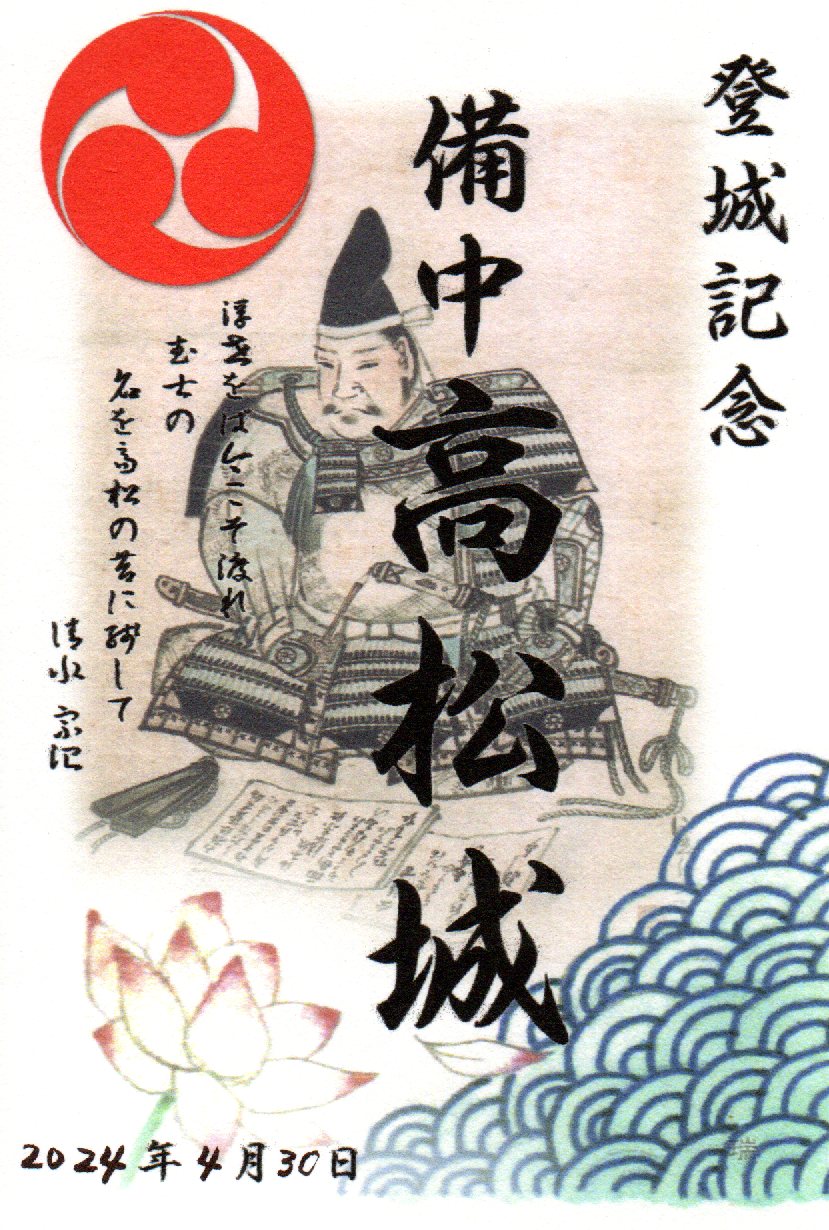 登城記念
備中高松城
浮世をば今こそ渡れ
武士の
名を高松の苔に残して
清水 宗治
2024年4月30日